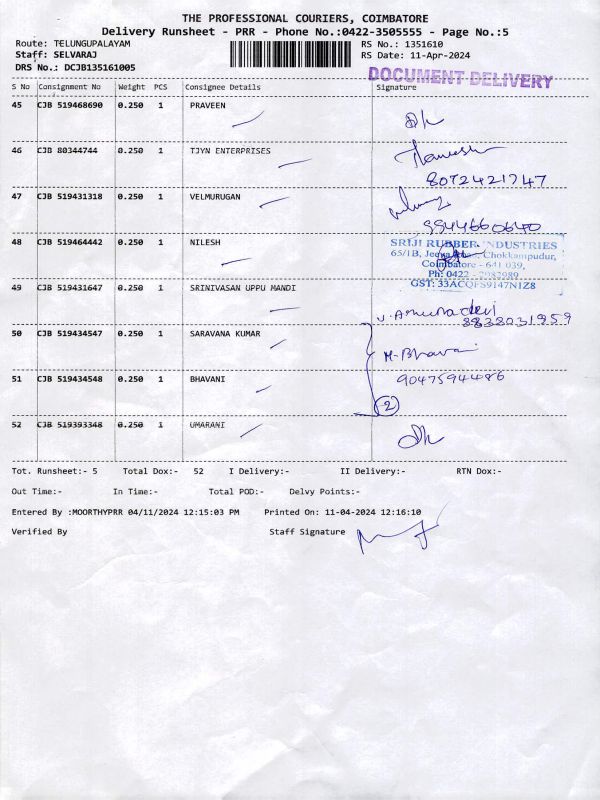 THE PROFESSIONAL COURIERS, COIMBATORE
Delivery Runsheet - PRR - Phone No.:0422-3505555 - Page No.:5
Route: TELUNGUPALAYAM
Staff: SELVARAJ
DRS No.: DCJB135161005
RS No.: 1351610
RS Date: 11-Apr-2024
DOCUMENT DELIVERY
S No Consignment No Weight PCS Consignee Details Signature
45 CJB 519468690 0.250 1 PRAVEEN
46 CJB 80344744 0.250 1 TJYN ENTERPRISES
8072421747
47 CJB 519431318 0.250 1 VELMURUGAN
9944660640
48 CJB 519464442 0.250 1 NILESH
SRIJI RUBBER INDUSTRIES
65/1B, Chokkampudur,
Coimbatore - 641 039,
Ph: 0422 - 2982989
GST: 33ACQFS9147N1Z8
49 CJB 519431647 0.250 1 SRINIVASAN UPPU MANDI
8838031959
50 CJB 519434547 0.250 1 SARAVANA KUMAR
M-Bhavani
51 CJB 519434548 0.250 1 BHAVANI
9047594486
2
52 CJB 519393348 0.250 1 UMARANI
Tot. Runsheet:- 5 Total Dox:- 52 I Delivery:- II Delivery:- RTN Dox:-
Out Time:- In Time:- Total POD:- Delvy Points:-
Entered By :MOORTHYPRR 04/11/2024 12:15:03 PM Printed On: 11-04-2024 12:16:10
Verified By Staff Signature